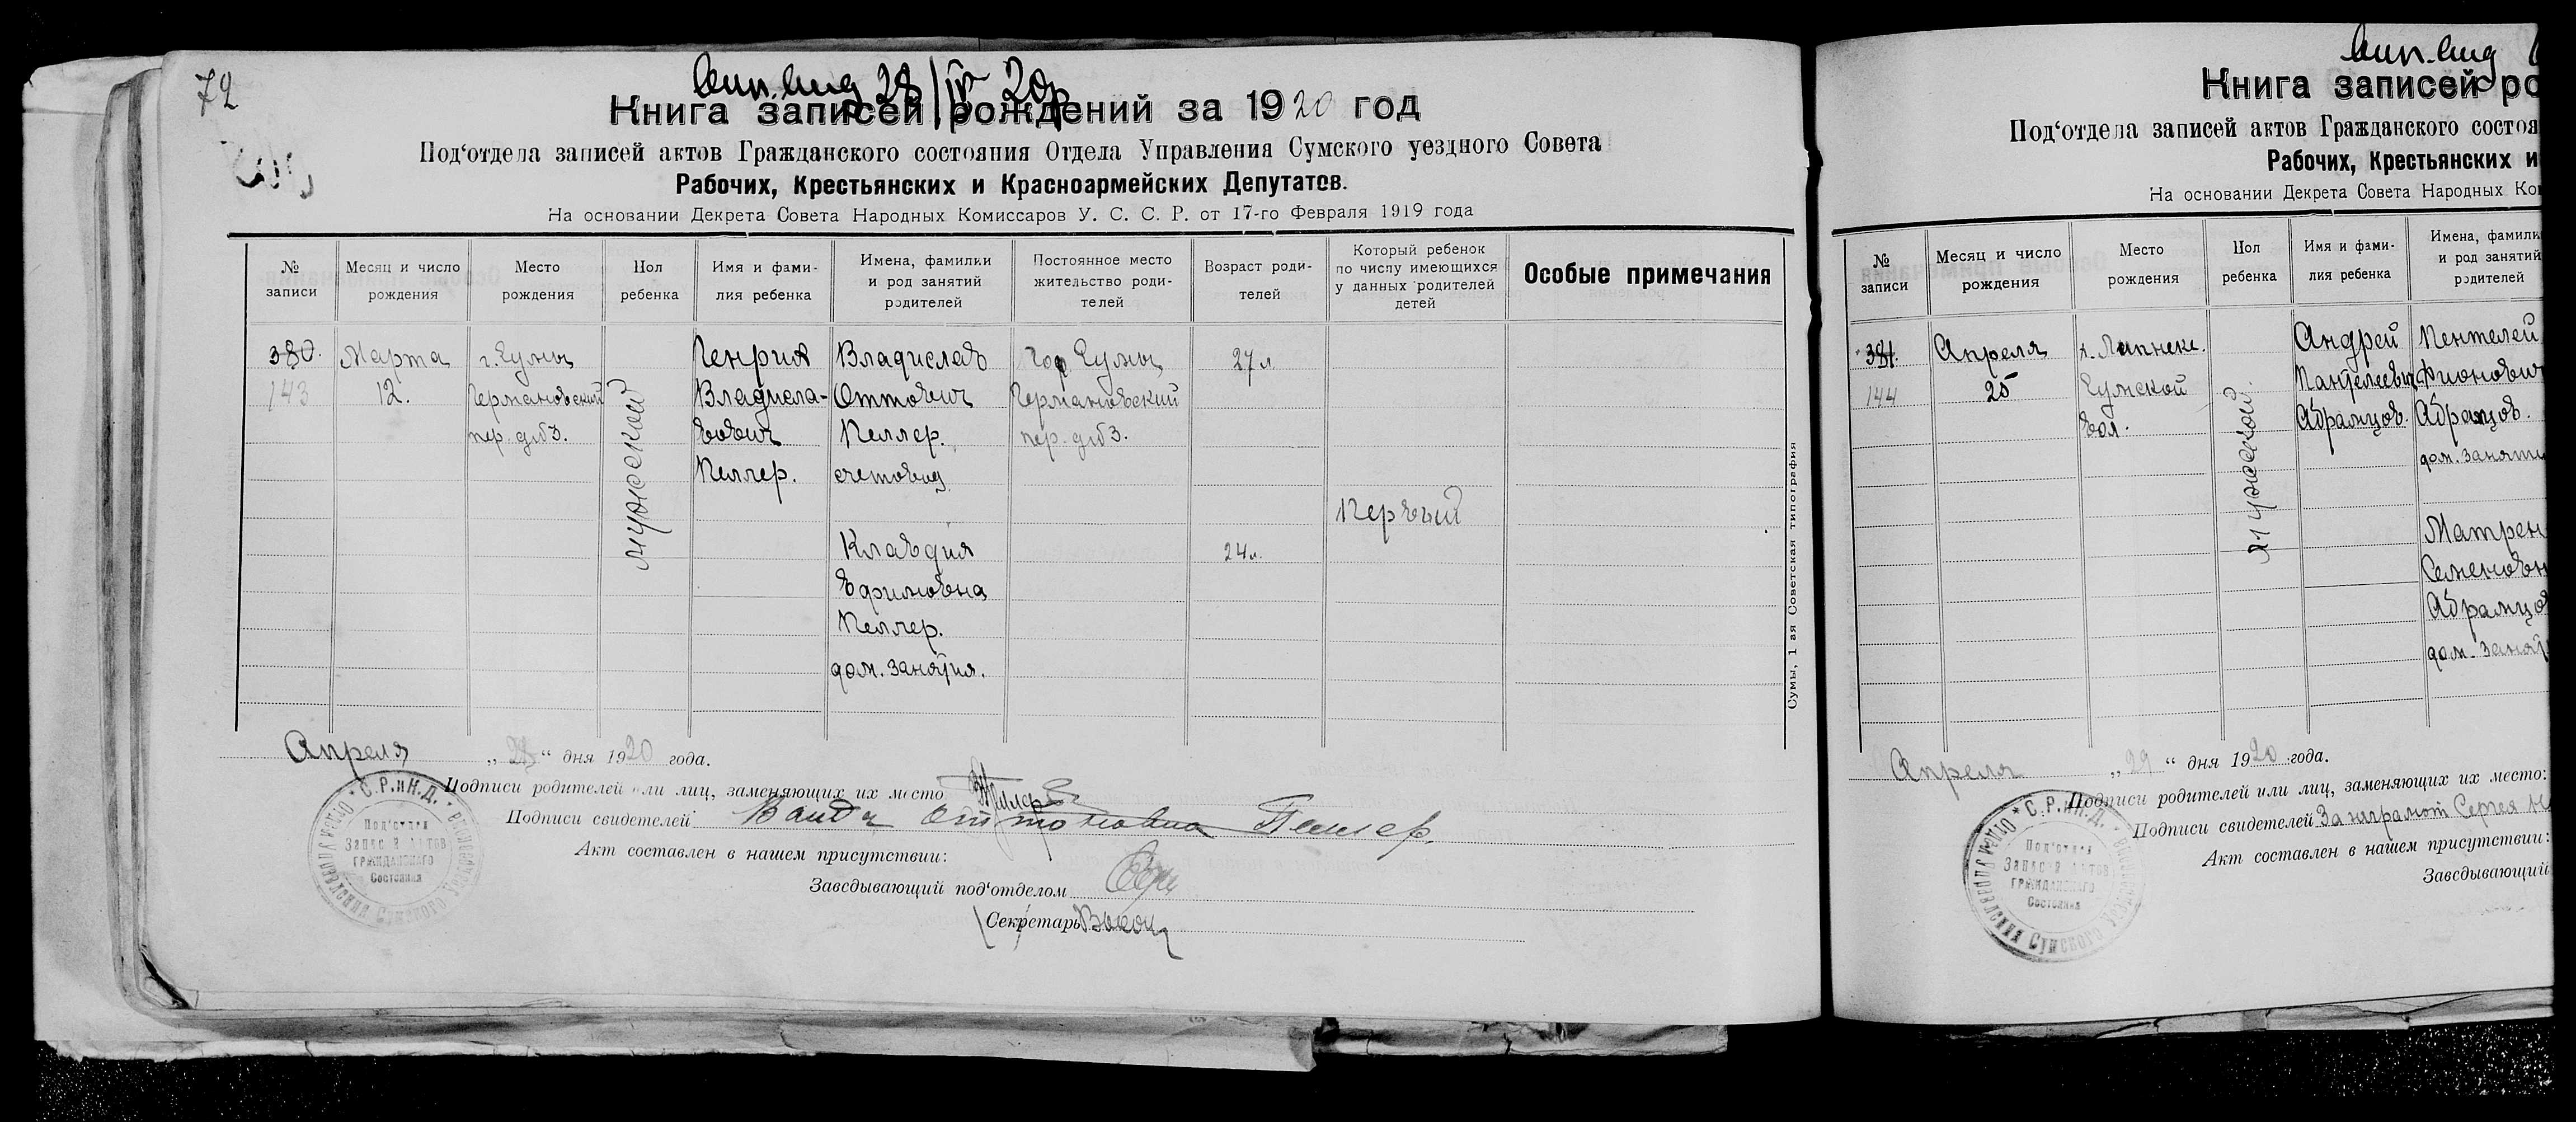 72
28/IV 20р
Книга записей рождений за 1920 год
Под‘отдела записей актов Гражданского состояния Отдела Управления Сумского уездного Совета
Рабочих, Крестьянских и Красноармейских Депутатов.
На основании Декрета Совета Народных Комиссаров У. С. С. Р. от 17-го Февраля 1919 года
№ записи
Месяц и число рождения
Место рождения
Пол ребенка
Имя и фами-
лия ребенка
Имена, фамилии
и род занятий
родителей
Постоянное место
жительство роди-
телей
Возраст роди-
телей
Который ребенок
по числу имеющихся
у данных родителей
детей
Особые примечания
380.
143
Марта
12.
г. Сумы
Германовский
пер. д№3.
мужской
Генрих
Владисла-
вович
Пеллер.
Владислав
Оттович
Пеллер.
счетовод
Клавдия
Ефимовна
Пеллер.
дом. занятия.
гор Сумы
Германовский
пер. д№3.
27 л
24 л.
Первый
Сумы, 1 ая Советская типография
Апреля „28“ дня 1920 года.
Подписи родителей или лиц, заменяющих их место
Подписи свидетелей Ванда Оттоновна Пеллер.
Акт составлен в нашем присутствии:
Заведывающий под‘отделом
Секретарь
С.Р.иН.Д.
Под‘отдел
Записей Актов
Гражданского
Состояния
Управления Сумского
Книга записей ро
Под‘отдела записей актов Гражданского состоя
Рабочих, Крестьянских и
На основании Декрета Совета Народных Ко
№ записи
Месяц и число рождения
Место рождения
Пол ребенка
Имя и фами-
лия ребенка
Имена, фамили
и род занятий
родителей
381.
144
Апреля
25
Сумской
вол.
мужской.
Андрей
Пантелеевич
Абрамцов.
Пентелей
Фионович
Абрамцов.
дом. заняти
Матрен
Семеновн
Абрамцов
дом. занят
Апреля „29“ дня 1920 года.
Подписи родителей или лиц, заменяющих их место:
Подписи свидетелей За неграмот Сергея
Акт составлен в нашем присутствии:
Заведывающий
С.Р.иН.Д.
Под‘отдел
Записей Актов
Гражданского
Состояния
Управления Сумского